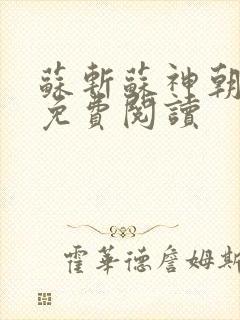 蘇斬蘇神朝
免費閱讀
霍華德詹姆斯